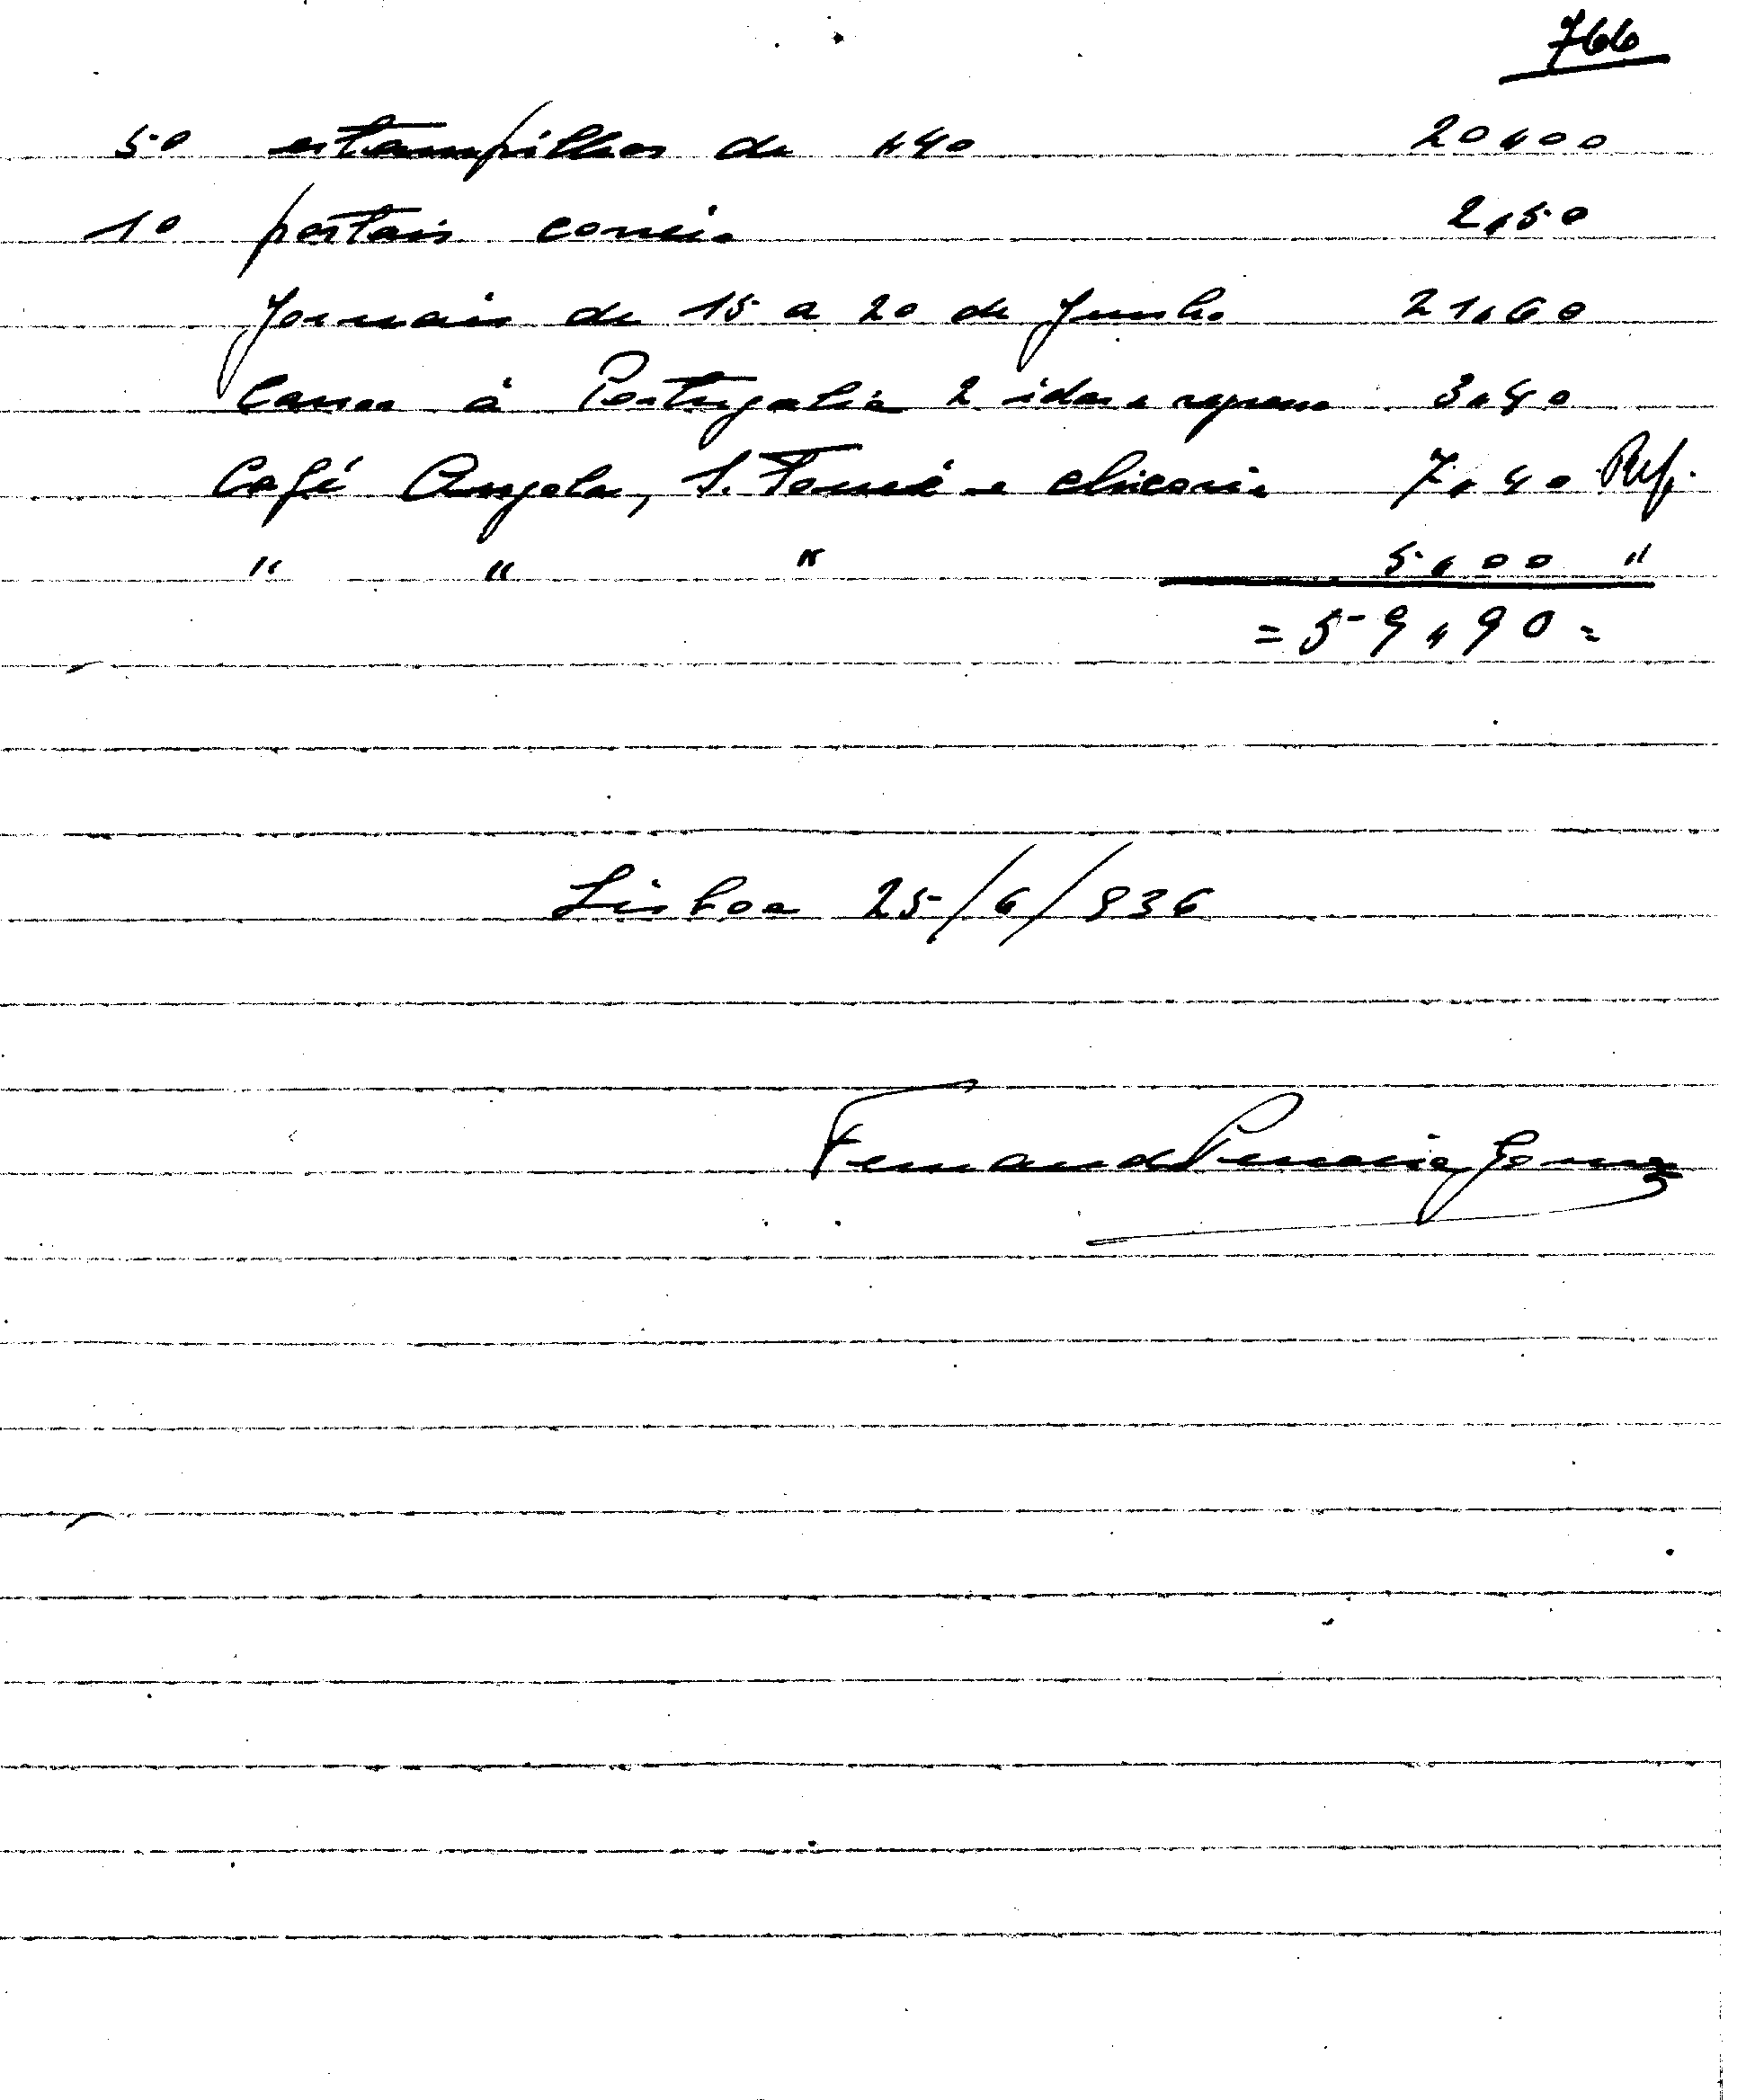 766
50 estampilhas de "40 20"00
10 postais correio 2"50
Jornais de 15 a 20 de Junho 21"60
Carros à Portugalia 2 idas e regresso 3"40
Café Angola, S. Tomé e chicoria 7"40 Ref.
" " " 5"00 "
= 59"90 =
Lisboa 25/6/936
Fernando Gomes